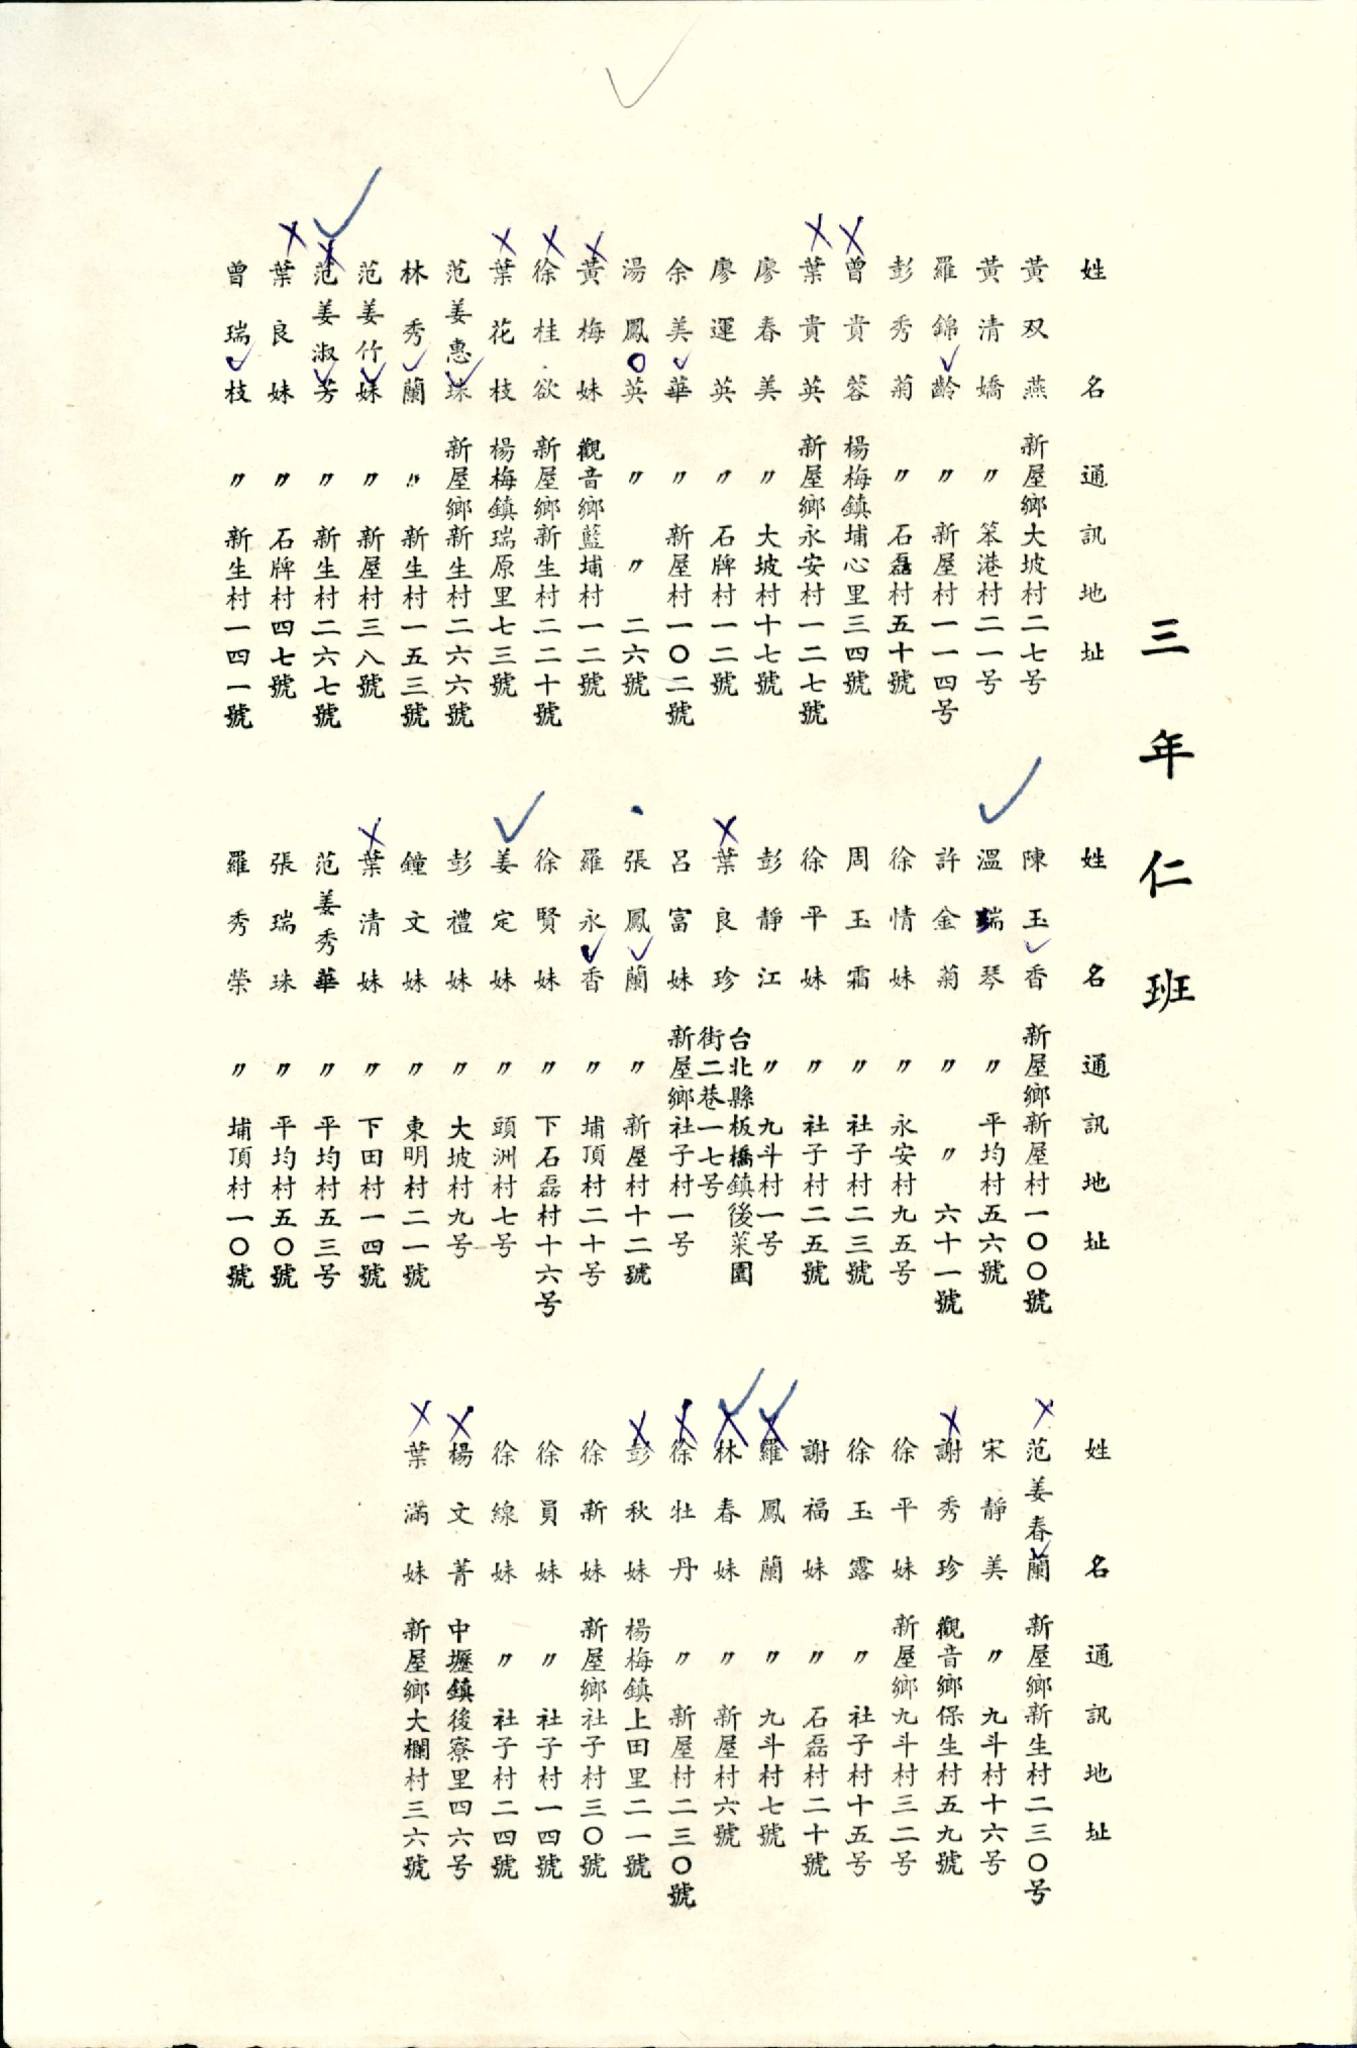 三年仁班
姓名 通訊地址
黃双燕 新屋鄉大坡村二七号
黃清嬌 〃 笨港村二一号
羅錦齡 〃 新屋村一一四号
彭秀菊 〃 石磊村五十號
曾貴蓉 楊梅鎮埔心里三四號
葉貴英 新屋鄉永安村一二七號
廖春美 〃 大坡村十七號
廖運英 〃 石牌村一二號
余美華 〃 新屋村一〇二號
湯鳳英 〃 〃 二六號
黃梅妹 觀音鄉藍埔村一二號
徐桂欲 新屋鄉新生村二二十號
葉花枝 楊梅鎮瑞原里七三號
范姜惠珠 新屋鄉新生村二六六號
林秀蘭 〃 新生村一五三號
范姜竹妹 〃 新屋村三八號
范姜淑芳 〃 新生村二六七號
葉良妹 〃 石牌村四七號
曾瑞枝 〃 新生村一四一號
姓名 通訊地址
陳玉香 新屋鄉新屋村一〇〇號
溫瑞琴 〃 平均村五六號
許金菊 〃 〃 六十一號
徐情妹 〃 永安村九五号
周玉霜 〃 社子村二三號
徐平妹 〃 社子村二五號
彭靜江 〃 九斗村一号
葉良珍 台北縣板橋鎮後菜園街二巷一七号
呂富妹 新屋鄉社子村一号
張鳳蘭 〃 新屋村十二號
羅永香 〃 埔頂村二十号
徐賢妹 〃 下石磊村十六号
姜定妹 〃 頭洲村七号
彭禮妹 〃 大坡村九号
鐘文妹 〃 東明村二一號
葉清妹 〃 下田村一四號
范姜秀華 〃 平均村五三号
張瑞珠 〃 平均村五〇號
羅秀榮 〃 埔頂村一〇號
姓名 通訊地址
范姜春蘭 新屋鄉新生村二三〇号
宋靜美 〃 九斗村十六号
謝秀珍 觀音鄉保生村五九號
徐平妹 新屋鄉九斗村三二号
徐玉露 〃 社子村十五号
謝福妹 〃 石磊村二十號
羅鳳蘭 〃 九斗村七號
林春妹 〃 新屋村六號
徐牡丹 〃 新屋村二三〇號
彭秋妹 楊梅鎮上田里二一號
徐新妹 新屋鄉社子村三〇號
徐員妹 〃 社子村一四號
徐線妹 〃 社子村二四號
楊文菁 中壢鎮後寮里四六号
葉滿妹 新屋鄉大欄村三六號